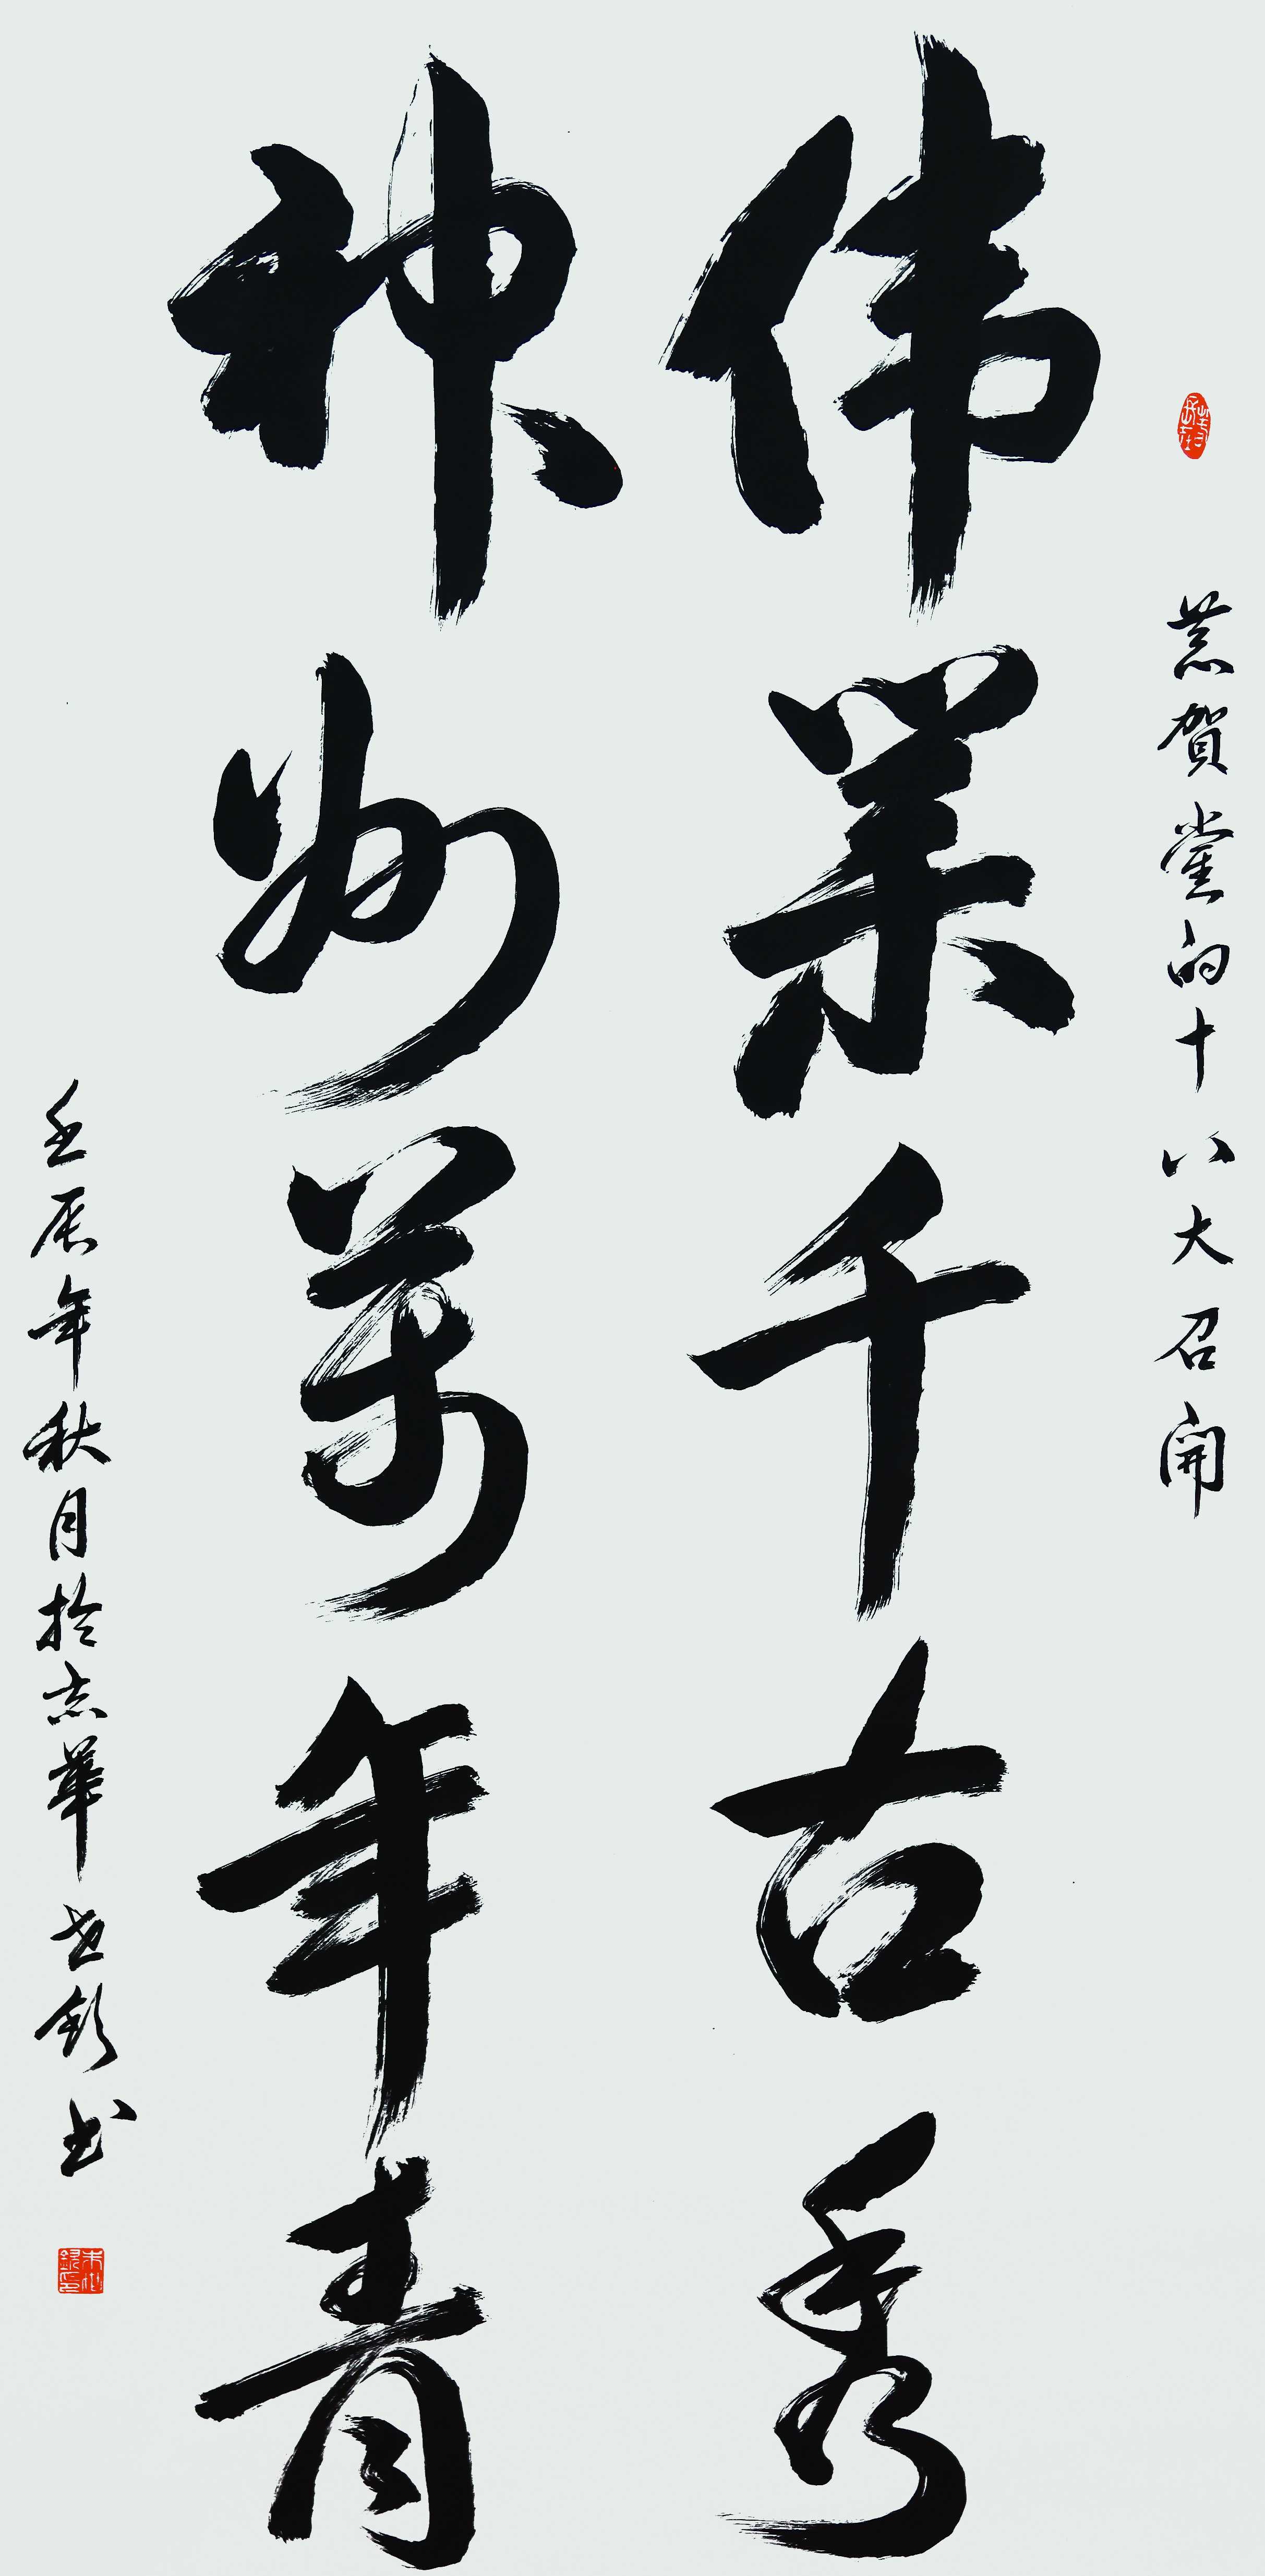 恭賀党的十八大召開
伟業千古秀
神州萬年青
壬辰年秋月於志華世欽书